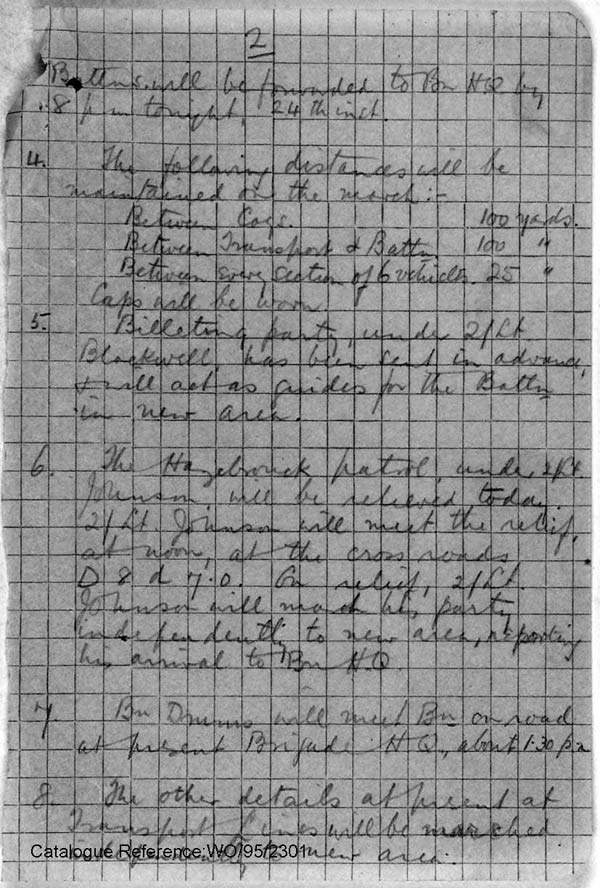 2
Battns. will be forwarded to Bn HQ by
8 pm tonight, 24th inst.
4. The following distances will be
maintained on the march:-
Between Coys. 100 yards.
Between Transport & Battn 100 "
Between every section of 6 vehicles. 25 "
Caps will be worn.
5. Billeting party, under 2/Lt
Blackwell, has been sent in advance,
& will act as guides for the Battn
in new area.
6. The Hazebrouck patrol, under 2/Lt.
Johnson, will be relieved today.
2/Lt. Johnson will meet the relief,
at noon, at the cross roads
D 8 d 7.0. On relief, 2/Lt.
Johnson will march his party
independently to new area, reporting
his arrival to Bn H.Q.
7. Bn Drums will meet Bn on road
at present Brigade H.Q, about 1.30 p.m
8. The other details at present at
Transport Lines will be marched
new area.
Catalogue Reference:WO/95/2301